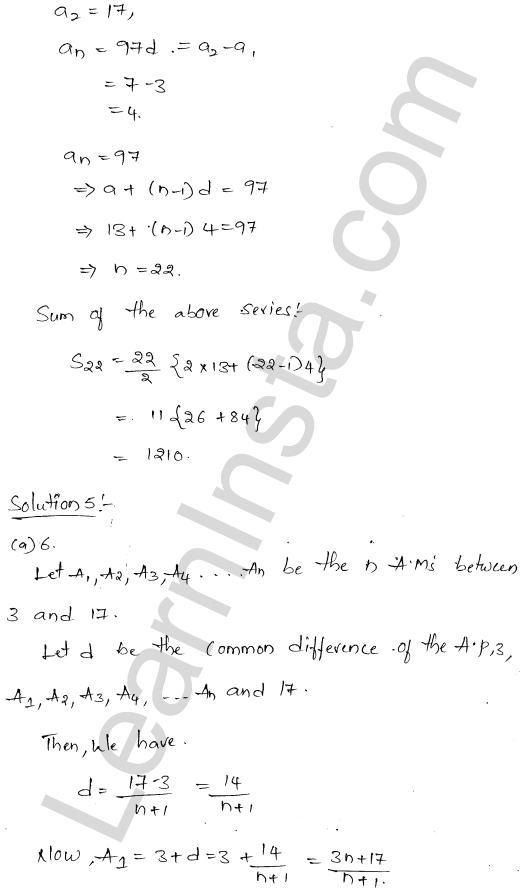 a₂ = 17,
aₙ = 97d . = a₂ - a₁
= 7 - 3
= 4.
aₙ = 97
⇒ a + (n-1) d = 97
⇒ 13 + (n-1) 4 = 97
⇒ n = 22.
Sum of the above series:-
S₂₂ = 22/2 {2 × 13 + (22-1)4}
= 11 {26 + 84}
= 1210.
Solution 5:-
(a) 6.
Let A₁, A₂, A₃, A₄ ..... Aₙ be the n A.M's between
3 and 17.
Let d be the Common difference of the A.P, 3,
A₁, A₂, A₃, A₄, ... Aₙ and 17.
Then, We have.
d = 17-3/n+1 = 14/n+1
Now, A₁ = 3 + d = 3 + 14/n+1 = 3n+17/n+1.
LearnInsta.com